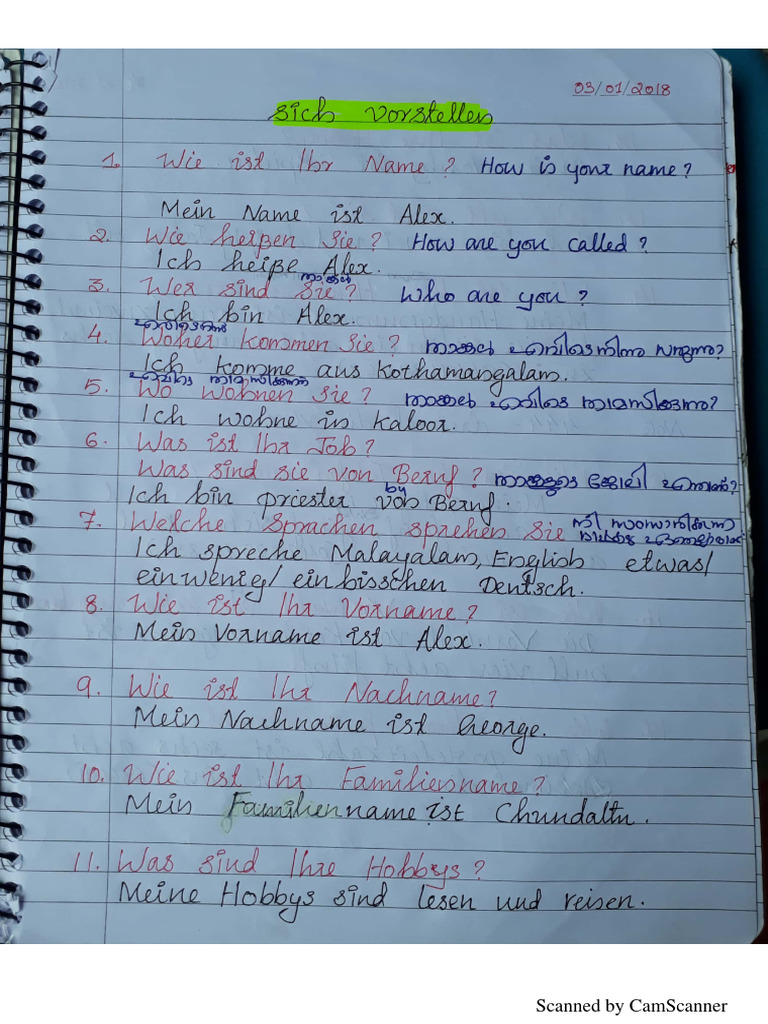 03/01/2018
sich vorstellen
1. Wie ist Ihr Name? How is your name?
Mein Name ist Alex.
2. Wie heißen Sie? How are you called?
Ich heiße Alex.
താങ്കൾ
3. Wer sind Sie? Who are you?
Ich bin Alex.
എവിടെനിന്ന്
4. Woher kommen Sie? താങ്കൾ എവിടെനിന്നു വരുന്നു?
Ich komme aus Kothamangalam.
എവിടെ താമസിക്കുന്നു
5. Wo wohnen Sie? താങ്കൾ എവിടെ താമസിക്കുന്നു?
Ich wohne in Kaloor.
6. Was ist Ihr Job?
Was sind sie von Beruf? താങ്കളുടെ ജോലി എന്താണ്?
by
Ich bin priester von Beruf.
7. Welche Sprachen sprehen Sie നീ സംസാരിക്കുന്ന
Ich spreche Malayalam, English etwas/
einwenig/ein bisschen Deutsch.
8. Wie ist Ihr Vorname?
Mein Vorname ist Alex.
9. Wie ist Ihr Nachname?
Mein Nachname ist George.
10. Wie ist Ihr Familiensname?
Mein Familienname ist Chundattu.
11. Was sind Ihre Hobbys?
Meine Hobbys sind lesen und reisen.
Scanned by CamScanner